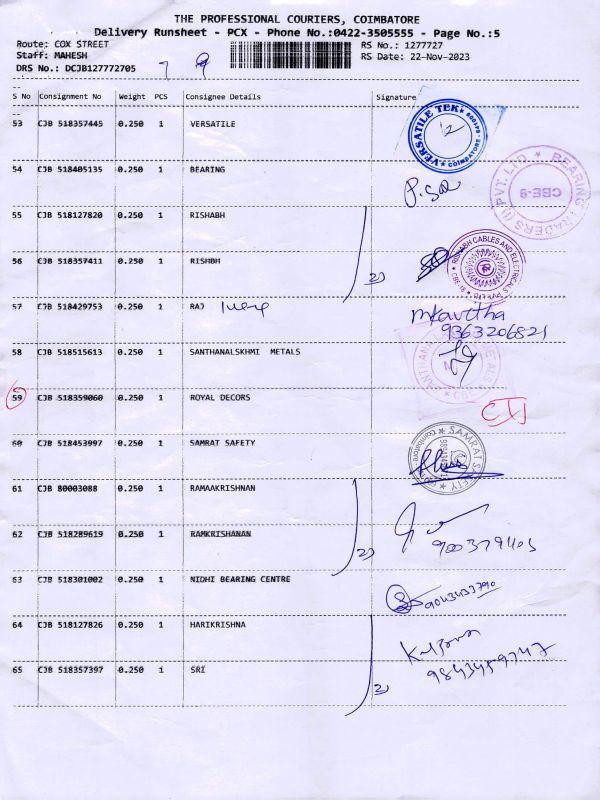 THE PROFESSIONAL COURIERS, COIMBATORE
Delivery Runsheet - PCX - Phone No.:0422-3505555 - Page No.:5
Route: COX STREET RS No.: 1277727
Staff: MAHESH RS Date: 22-Nov-2023
DRS No.: DCJB127772705
S No Consignment No Weight PCS Consignee Details Signature
53 CJB 518357445 0.250 1 VERSATILE
VERSATILE TEK COIMBATORE
54 CJB 518405135 0.250 1 BEARING
BEARING TRADERS (I) PVT. LTD. CBE-9
55 CJB 518127820 0.250 1 RISHABH
56 CJB 518357411 0.250 1 RISHBH
2)
RISHABH CABLES AND ELECTRICALS PVT. LTD CBE-18
57 CJB 518429753 0.250 1 RAJ
mkavitha
9363206821
58 CJB 518515613 0.250 1 SANTHANALSKHMI METALS
59 CJB 518359060 0.250 1 ROYAL DECORS
60 CJB 518453997 0.250 1 SAMRAT SAFETY
SAMRAT SAFETY Coimbatore
61 CJB 80003088 0.250 1 RAMAAKRISHNAN
62 CJB 518289619 0.250 1 RAMKRISHANAN
2)
63 CJB 518301002 0.250 1 NIDHI BEARING CENTRE
9043433790
64 CJB 518127826 0.250 1 HARIKRISHNA
9843459747
65 CJB 518357397 0.250 1 SRI
2)